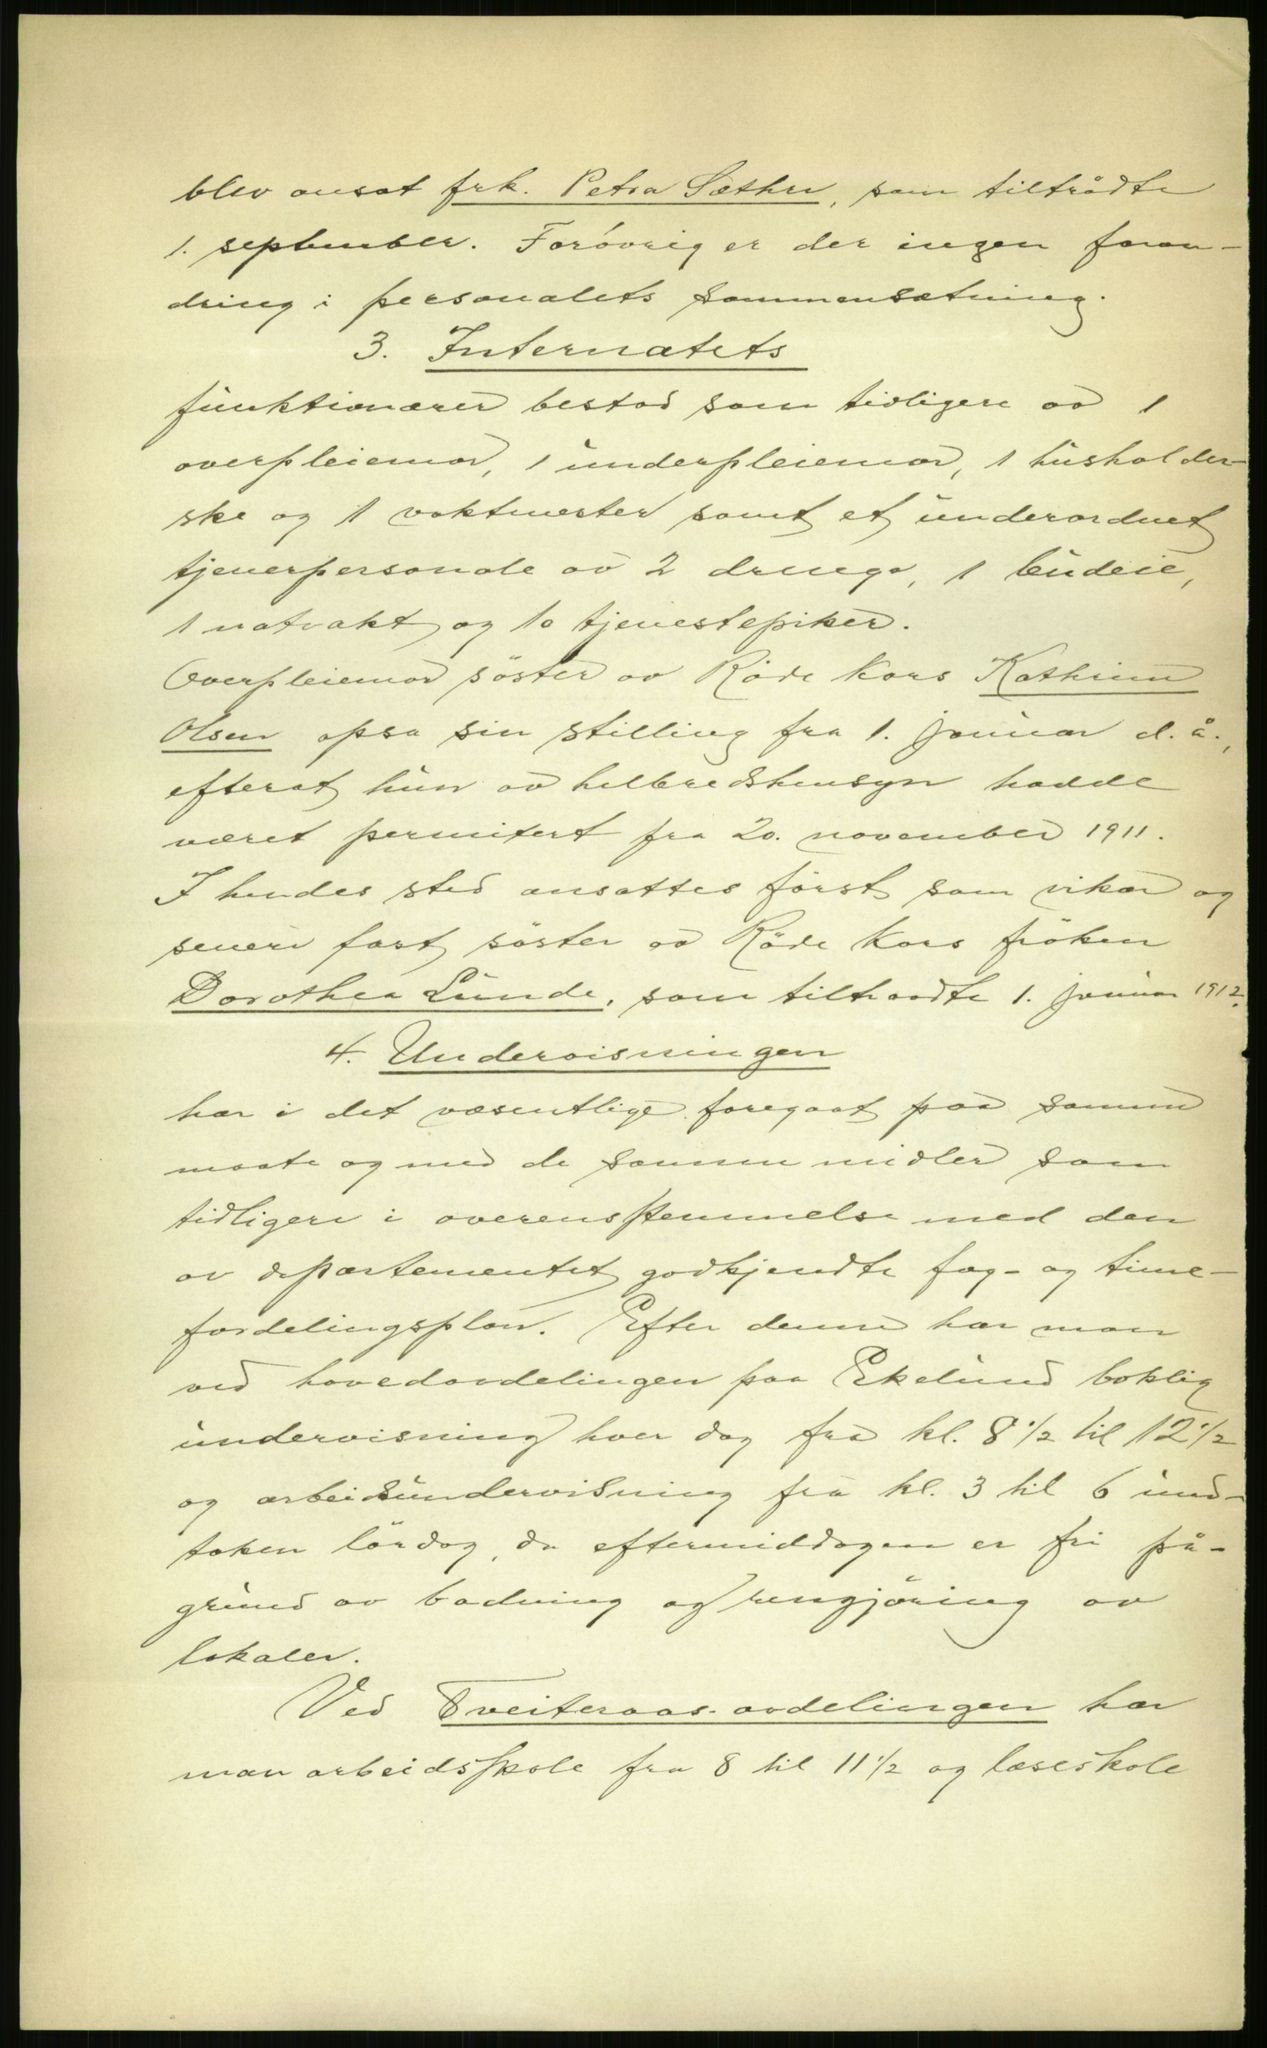 blev ansat frk. Petra Sæther, som tiltrådte
1. september. Forøvrig er der ingen foran-
dring i personalets sammensætning.
3. Internatets
funktionærer bestod som tidligere av 1
overpleiemor, 1 underpleiemor, 1 husholder-
ske og 1 vaktmester samt et underordnet
tjenerpersonale av 2 drenge, 1 budeie,
1 natvakt og 10 tjenestepiker.
Overpleiemor søster av Røde Kors Kathrine
Olsen opsa sin stilling fra 1. januar d. å.,
efterat hun av helbredshensyn hadde
været permitert fra 20. november 1911.
I hendes sted ansattes først som vikar og
senere fast søster av Røde Kors frøken
Dorothea Lunde, som tiltraadte 1. januar 1912.
4. Undervisningen
har i det væsentlige foregaat paa samme
maate og med de samme midler som
tidligere i overensstemmelse med den
av departementet godkjendte fag- og time-
fordelingsplan. Efter denne har man
ved hovedavdelingen paa Ekelund boklig
undervisning hver dag fra kl. 8 1/2 til 12 1/2
og arbeidsundervisning fra kl. 3 til 6 und-
taken lördag, da eftermiddagen er fri på-
grund av badning og rengjøring av
lokaler.
Ved Tveiteraas-avdelingen har
man arbeidsskole fra 8 til 11 1/2 og læseskole